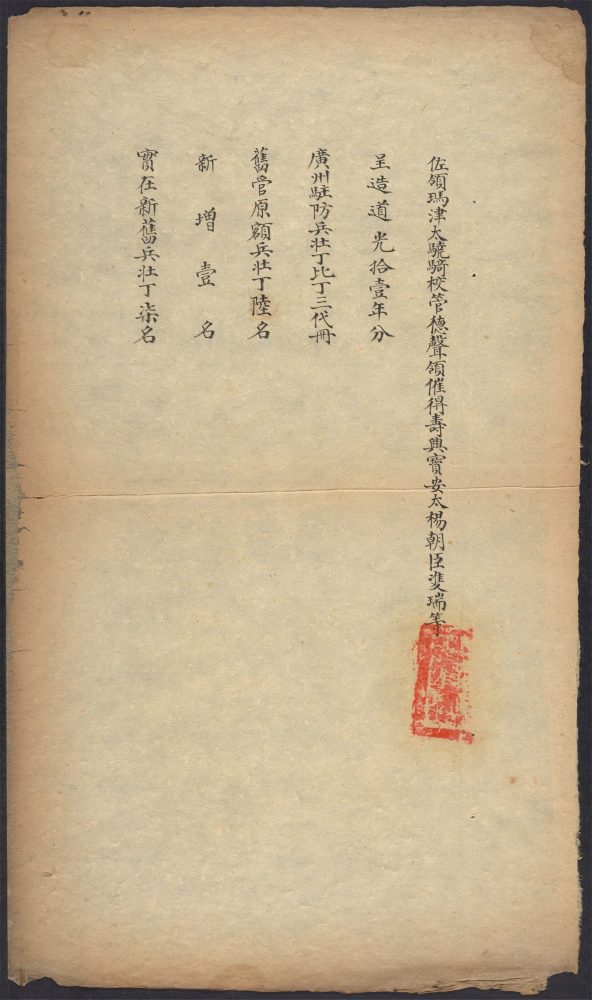 佐領瑪津太驍騎校管德聲領催得壽興寶安太楊朝臣雙瑞等
呈造道光拾壹年分
廣州駐防兵壯丁比丁三代冊
舊管原額兵壯丁陸名
新增壹名
實在新舊兵壯丁柒名